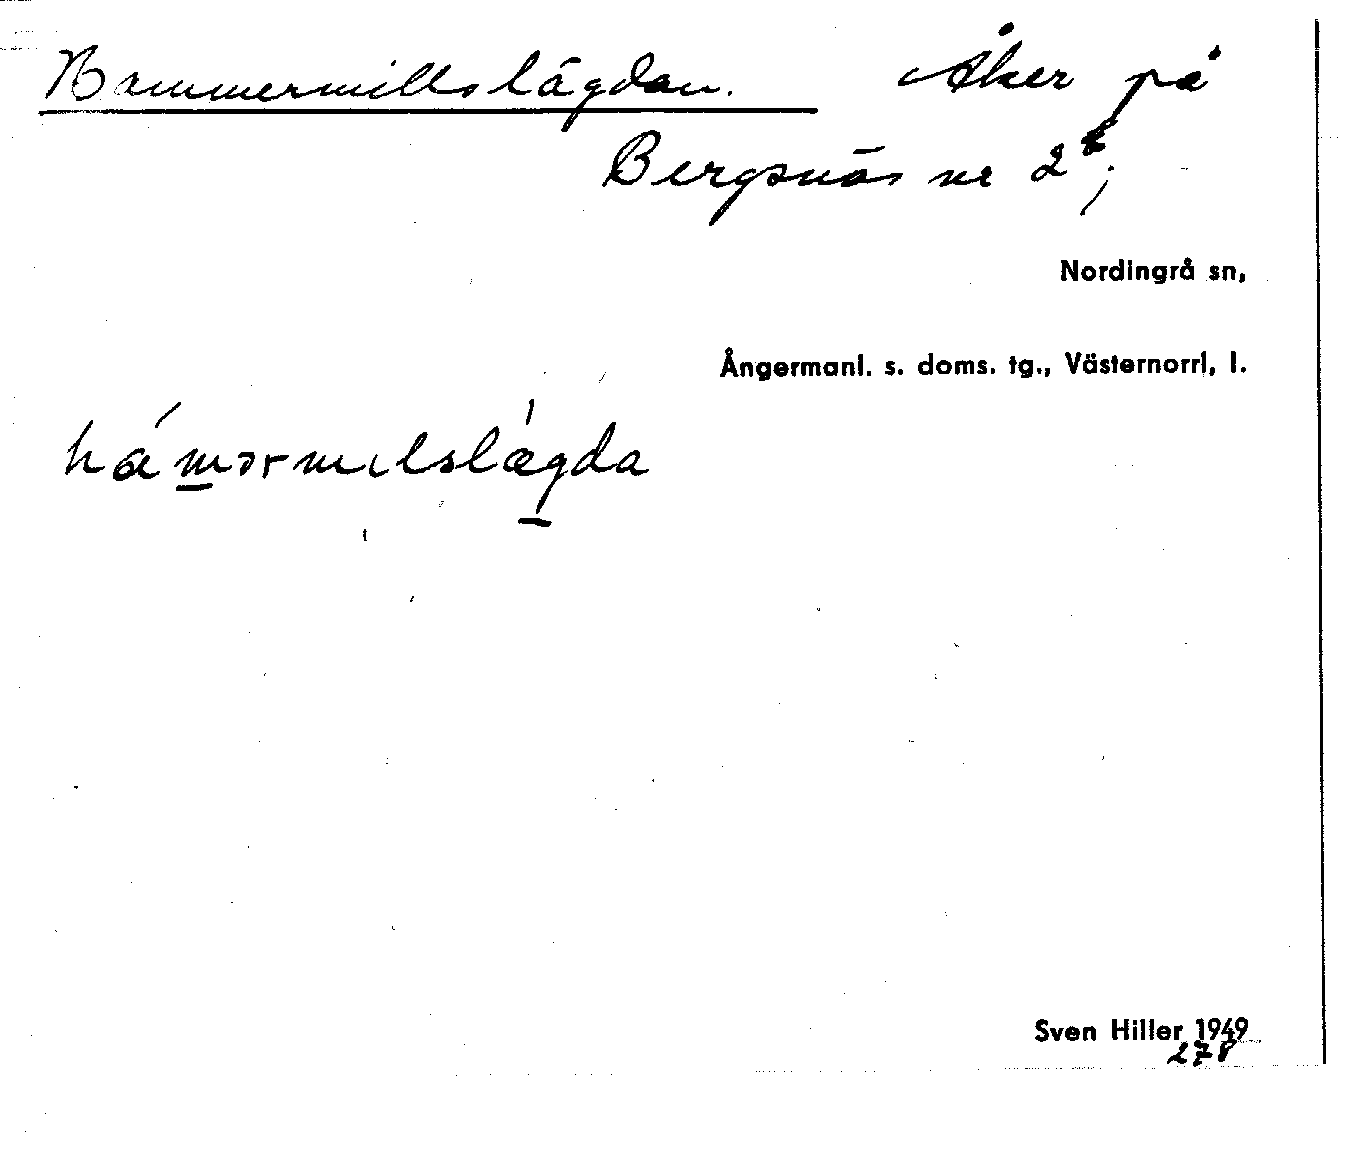 Hammermillslägdan. Åker på
Bergsnäs nr 2
Nordingrå sn,
Ångermanl. s. doms. tg., Västernorrl. l.
hámərmɩlslǽgda
Sven Hiller 1949
278